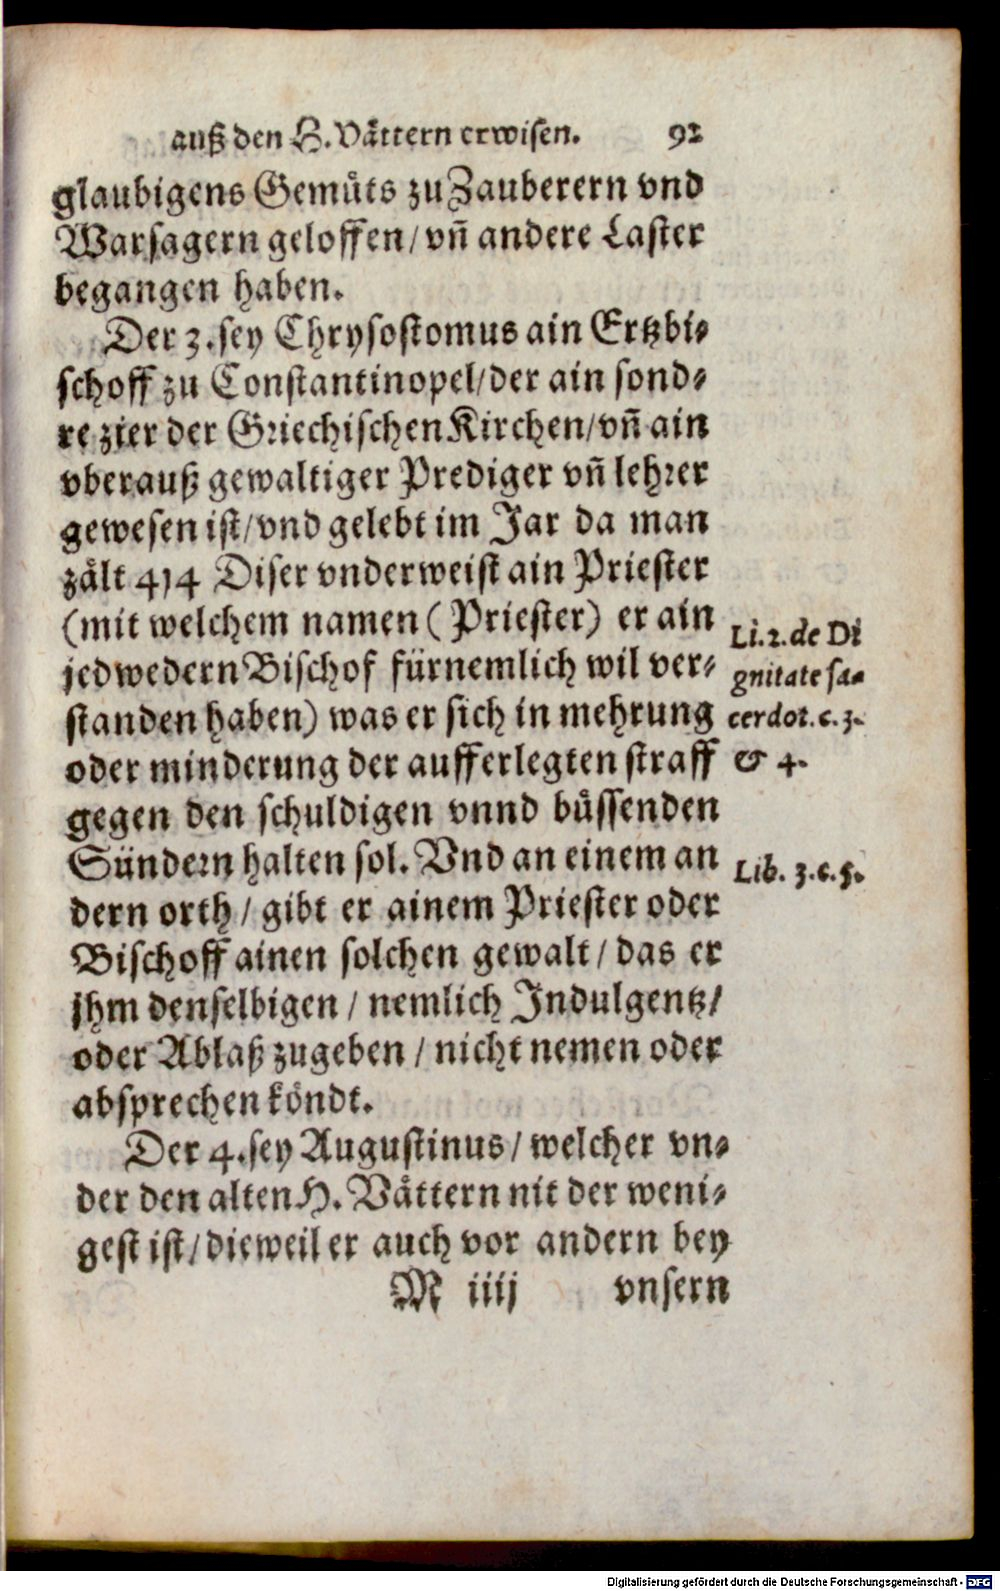 auß den H. Våttern erwisen. 92
glaubigens Gemůts zu Zauberern vnd
Warsagern geloffen/ vñ andere Laster
begangen haben.
Der 3. sey Chrysostomus ain Ertzbi⸗
schoff zu Constantinopel/ der ain sond⸗
re zier der Griechischen Kirchen/ vñ ain
vberauß gewaltiger Prediger vñ lehrer
gewesen ist/ vnd gelebt im Jar da man
zålt 414 Diser vnderweist ain Priester
(mit welchem namen (Priester) er ain
jedwedern Bischof fürnemlich wil ver⸗
standen haben) was er sich in mehrung
oder minderung der aufferlegten straff
gegen den schuldigen vnnd bůssenden
Sündern halten sol. Vnd an einem an
dern orth/ gibt er ainem Priester oder
Bischoff ainen solchen gewalt/ das er
jhm denselbigen/ nemlich Indulgentz/
oder Ablaß zugeben/ nicht nemen oder
absprechen kôndt.
Der 4. sey Augustinus/ welcher vn⸗
der den alten H. Våttern nit der weni⸗
gest ist/ dieweil er auch vor andern bey
M iiij vnsern
Li. 2. de Di
gnitate sa⸗
cerdot. c. 3.
& 4.
Lib. 3. c. 5.
Digitalisierung gefördert durch die Deutsche Forschungsgemeinschaft - DFG